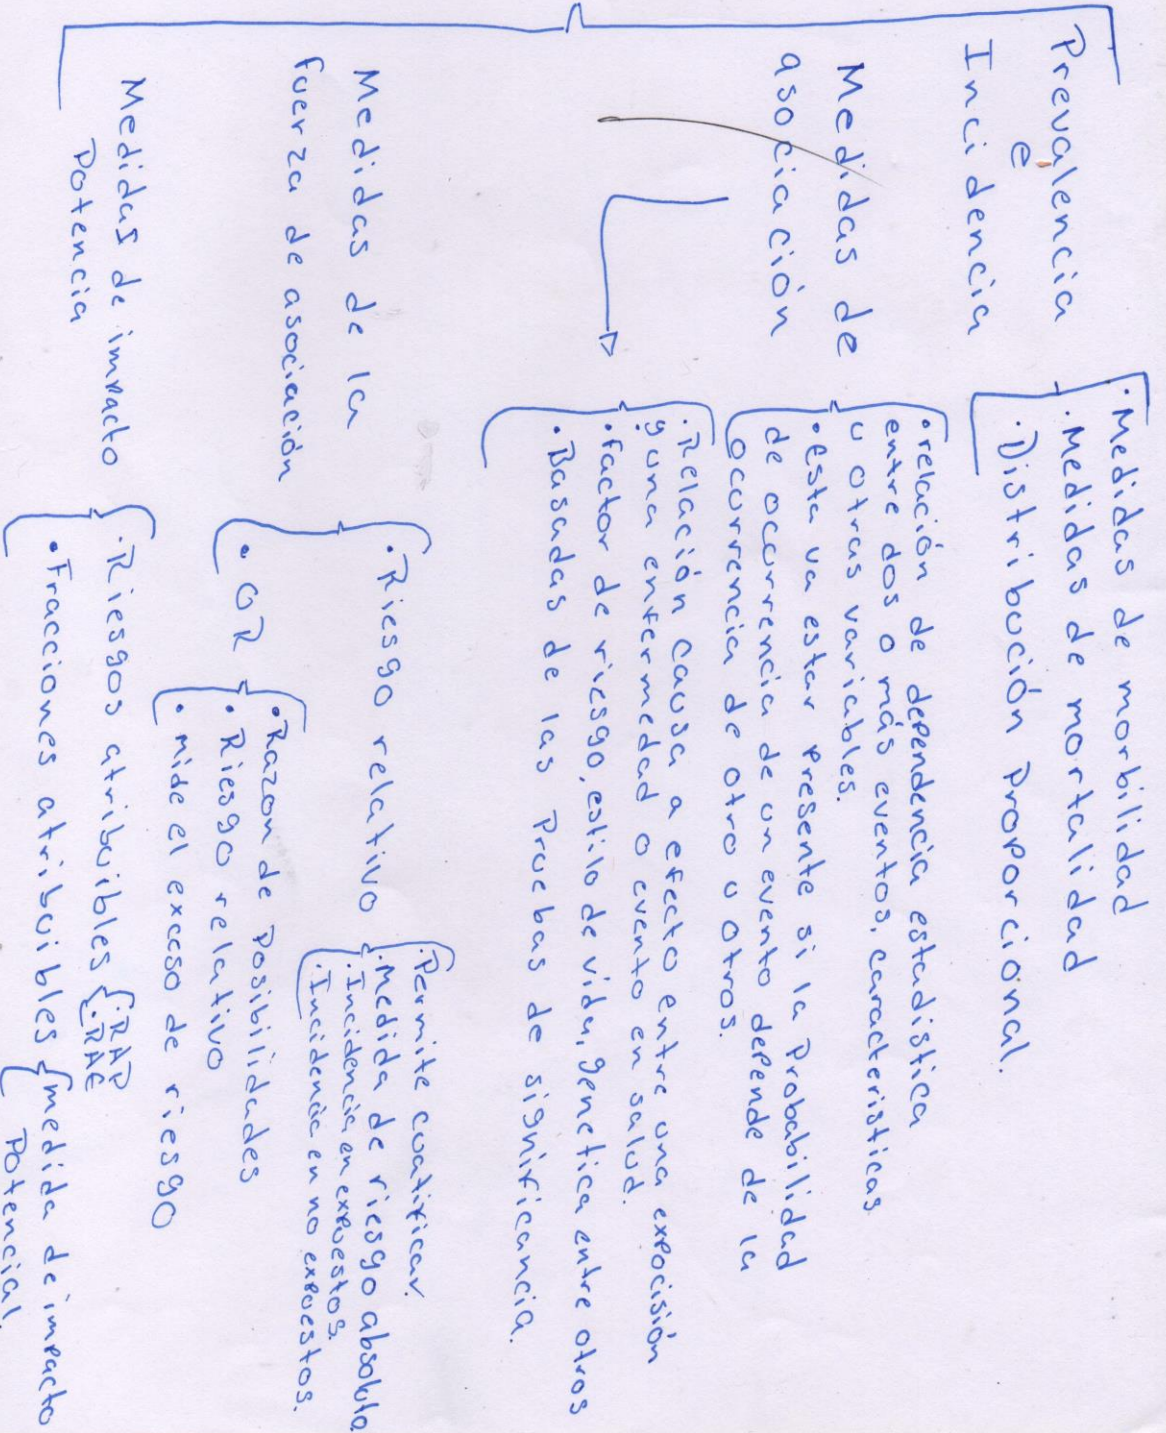 Prevalencia
e
Incidencia
· Medidas de morbilidad
· Medidas de mortalidad
· Distribución proporcional.
Medidas de
asociación
• relación de dependencia estadistica
entre dos o más eventos, caracteristicas
u otras variables.
• esta va estar presente si la probabilidad
de ocurrencia de un evento depende de la
ocurrencia de otro u otros.
· Relación causa a efecto entre una expocisión
y una enfermedad o evento en salud.
• factor de riesgo, estilo de vida, genetica entre otros
• Basadas de las pruebas de significancia.
Medidas de la
fuerza de asociación
• Riesgo relativo
· Permite cuatificar.
· Medida de riesgo absoluta
· Incidencia en expuestos.
· Incidencia en no expuestos.
• OR
• Razon de posibilidades
• Riesgo relativo
• mide el exceso de riesgo
Medidas de impacto
potencia
· Riesgos atribuibles
· RAP
· RAE
• Fracciones atribuibles
medida de impacto
potencial.